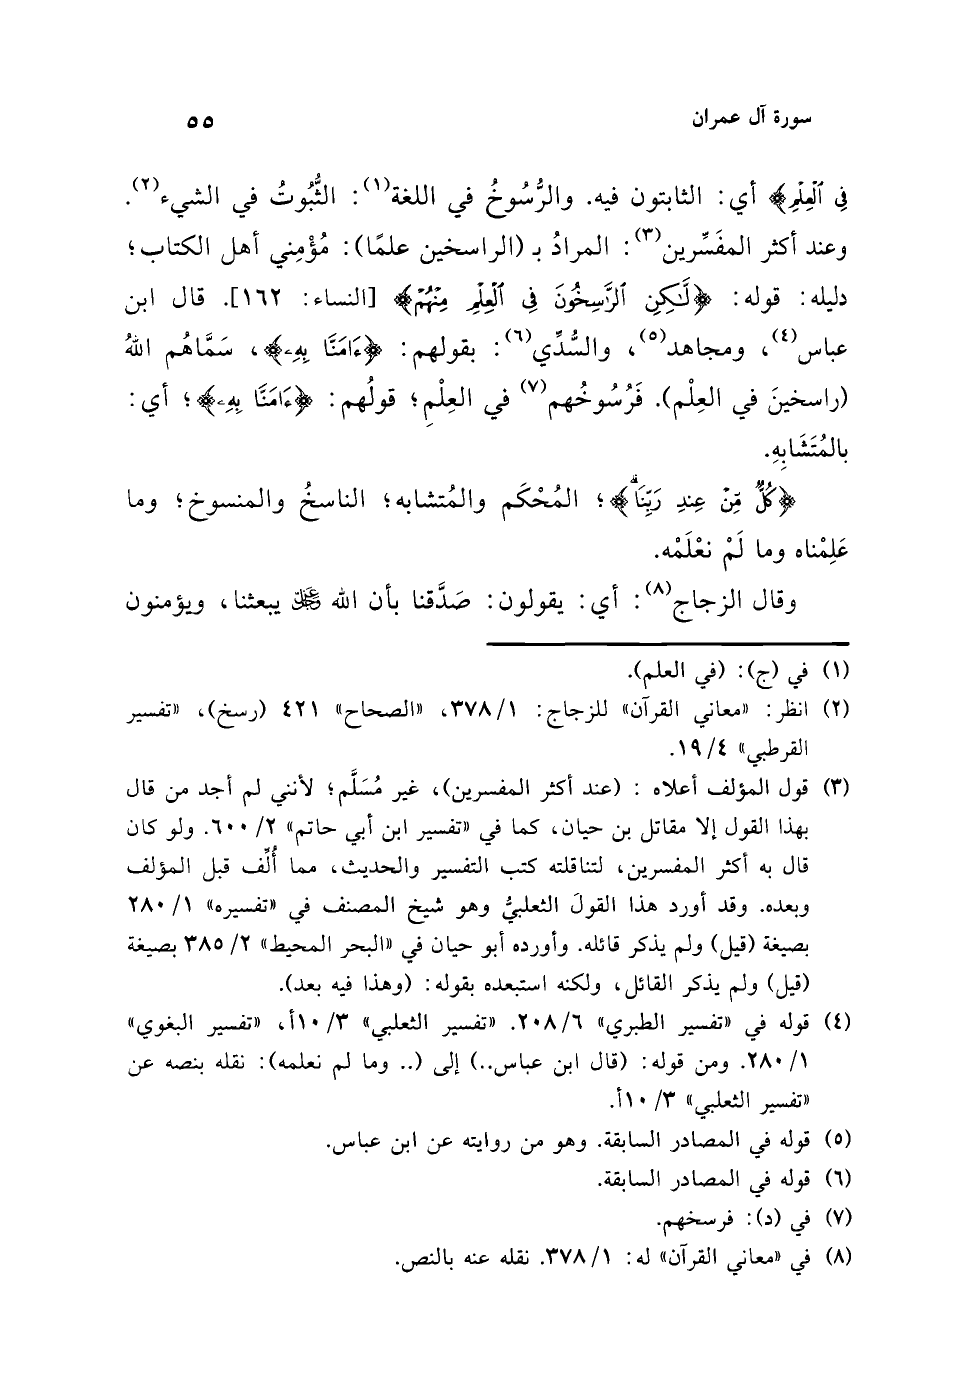 سورة آل عمران ٥٥
فِي ٱلْعِلْمِ﴾ أي: الثابتون فيه. والرُّسُوخُ في اللغة(١): الثُّبُوتُ في الشيء(٢).
وعند أكثر المفَسِّرين(٣): المرادُ بـ (الراسخين علمًا): مُؤْمِني أهل الكتاب؛
دليله: قوله: ﴿لَّٰكِنِ ٱلرَّٰسِخُونَ فِي ٱلْعِلْمِ مِنْهُمْ﴾ [النساء: ١٦٢]. قال ابن
عباس(٤)، ومجاهد(٥)، والسُّدِّي(٦): بقولهم: ﴿ءَامَنَّا بِهِۦ﴾، سَمَّاهُم اللهُ
(راسخينَ في العِلْم). فَرُسُوخُهم(٧) في العِلْمِ؛ قولُهم: ﴿ءَامَنَّا بِهِۦ﴾؛ أي:
بالمُتَشَابِهِ.
﴿كُلٌّ مِّنْ عِندِ رَبِّنَاۗ﴾؛ المُحْكَم والمُتشابه؛ الناسخُ والمنسوخ؛ وما
عَلِمْناه وما لَمْ نعْلَمْه.
وقال الزجاج(٨): أي: يقولون: صَدَّقنا بأن الله ﷿ يبعثنا، ويؤمنون
(١) في (ج): (في العلم).
(٢) انظر: «معاني القرآن» للزجاج: ٣٧٨/١، «الصحاح» ٤٢١ (رسخ)، «تفسير
القرطبي» ١٩/٤.
(٣) قول المؤلف أعلاه : (عند أكثر المفسرين)، غير مُسَلَّم؛ لأنني لم أجد من قال
بهذا القول إلا مقاتل بن حيان، كما في «تفسير ابن أبي حاتم» ٦٠٠/٢. ولو كان
قال به أكثر المفسرين، لتناقلته كتب التفسير والحديث، مما أُلِّف قبل المؤلف
وبعده. وقد أورد هذا القولَ الثعلبيُّ وهو شيخ المصنف في «تفسيره» ٢٨٠/١
بصيغة (قيل) ولم يذكر قائله. وأورده أبو حيان في «البحر المحيط» ٣٨٥/٢ بصيغة
(قيل) ولم يذكر القائل، ولكنه استبعده بقوله: (وهذا فيه بعد).
(٤) قوله في «تفسير الطبري» ٢٠٨/٦. «تفسير الثعلبي» ١٠/٣أ، «تفسير البغوي»
٢٨٠/١. ومن قوله: (قال ابن عباس..) إلى (.. وما لم نعلمه): نقله بنصه عن
«تفسير الثعلبي» ١٠/٣أ.
(٥) قوله في المصادر السابقة. وهو من روايته عن ابن عباس.
(٦) قوله في المصادر السابقة.
(٧) في (د): فرسخهم.
(٨) في «معاني القرآن» له: ٣٧٨/١. نقله عنه بالنص.